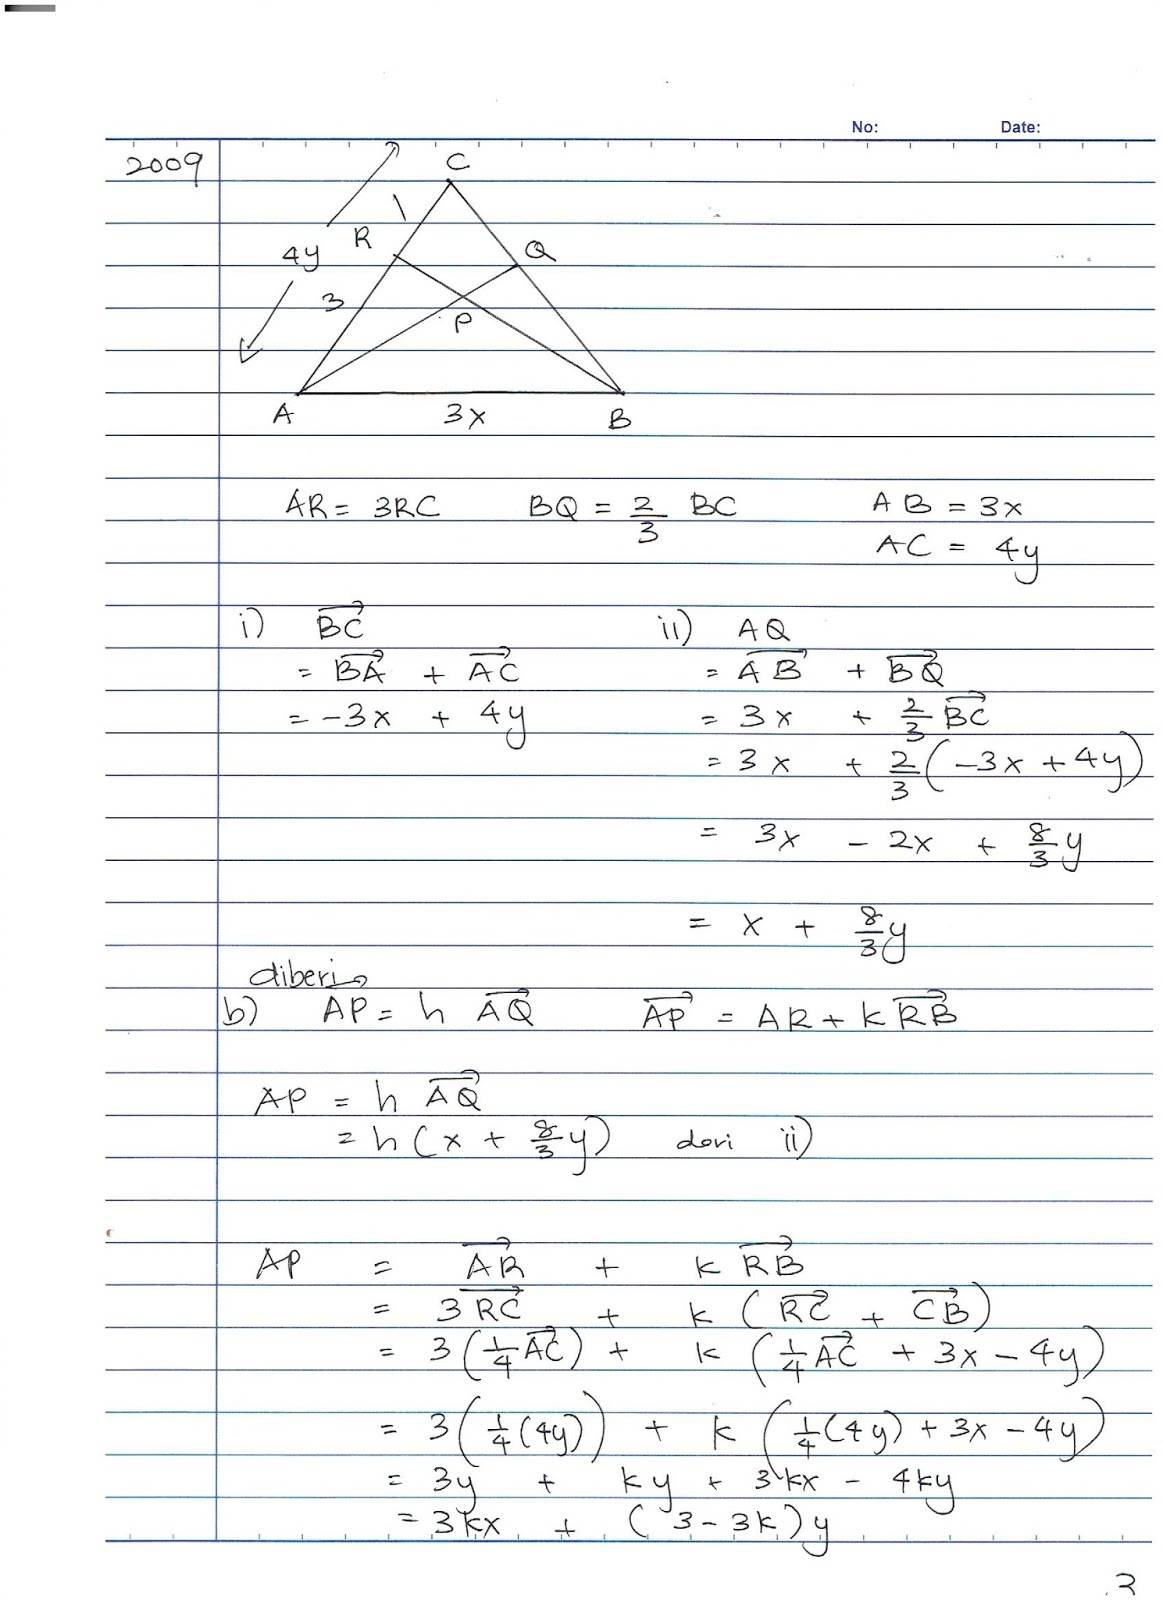 No: Date:
2009
C
1
R
Q
4y
3
P
A 3x B
AR = 3RC BQ = 2/3 BC AB = 3x
AC = 4y
i) BC→
= BA→ + AC→
= -3x + 4y
ii) AQ
= AB→ + BQ→
= 3x + 2/3 BC→
= 3x + 2/3 (-3x + 4y)
= 3x - 2x + 8/3 y
= x + 8/3 y
diberi→
b) AP = h AQ→ AP→ = AR + k RB→
AP = h AQ→
= h (x + 8/3 y) dari ii)
AP = AR→ + k RB→
= 3 RC→ + k (RC→ + CB→)
= 3 (1/4 AC→) + k (1/4 AC→ + 3x - 4y)
= 3 (1/4 (4y)) + k (1/4 (4y) + 3x - 4y)
= 3y + ky + 3kx - 4ky
= 3kx + (3 - 3k) y
3